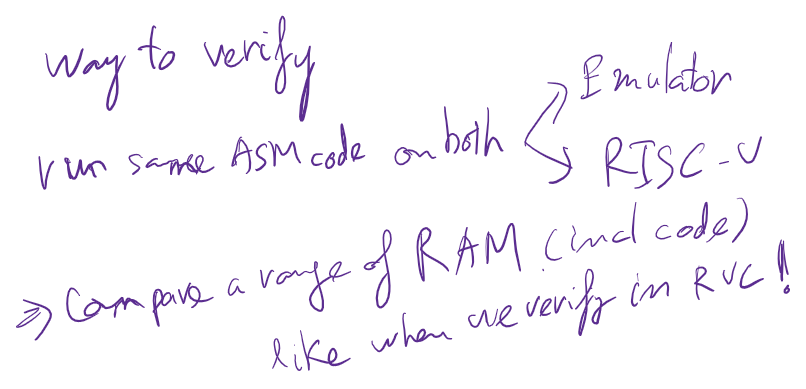 way to verify
run same ASM code on both
Emulator
RISC-V
=> Compare a range of RAM (incl code)
like when we verify in RVC!